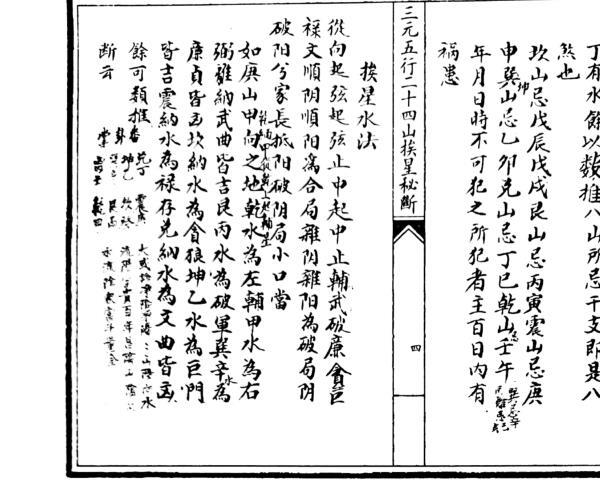 丁有水餘以數推八山所忌干支即是八
煞也
坎山忌戊辰戊戌艮山忌丙寅震山忌庚
申巽山忌乙卯兌山忌丁巳乾山壬午
坤
忌
年月日時不可犯之所犯者主百日內有
禍患
三元五行二十四山挨星秘斷
四
挨星水法
從向起弦起弦止中起中止輔武破廉貪巨
祿文順阴順阳為合局雜阴雜阳為破局阴
破阳兮家長抵阳破阴局小口當
如庚山甲向之地乾水為左輔甲水為右
弼離納武曲皆吉艮丙水為破軍巽辛為
水
廉貞皆凶坎納水為貪狼坤乙水為巨門
皆吉震納水為祿存兌納水為文曲皆凶
餘可類推
断云